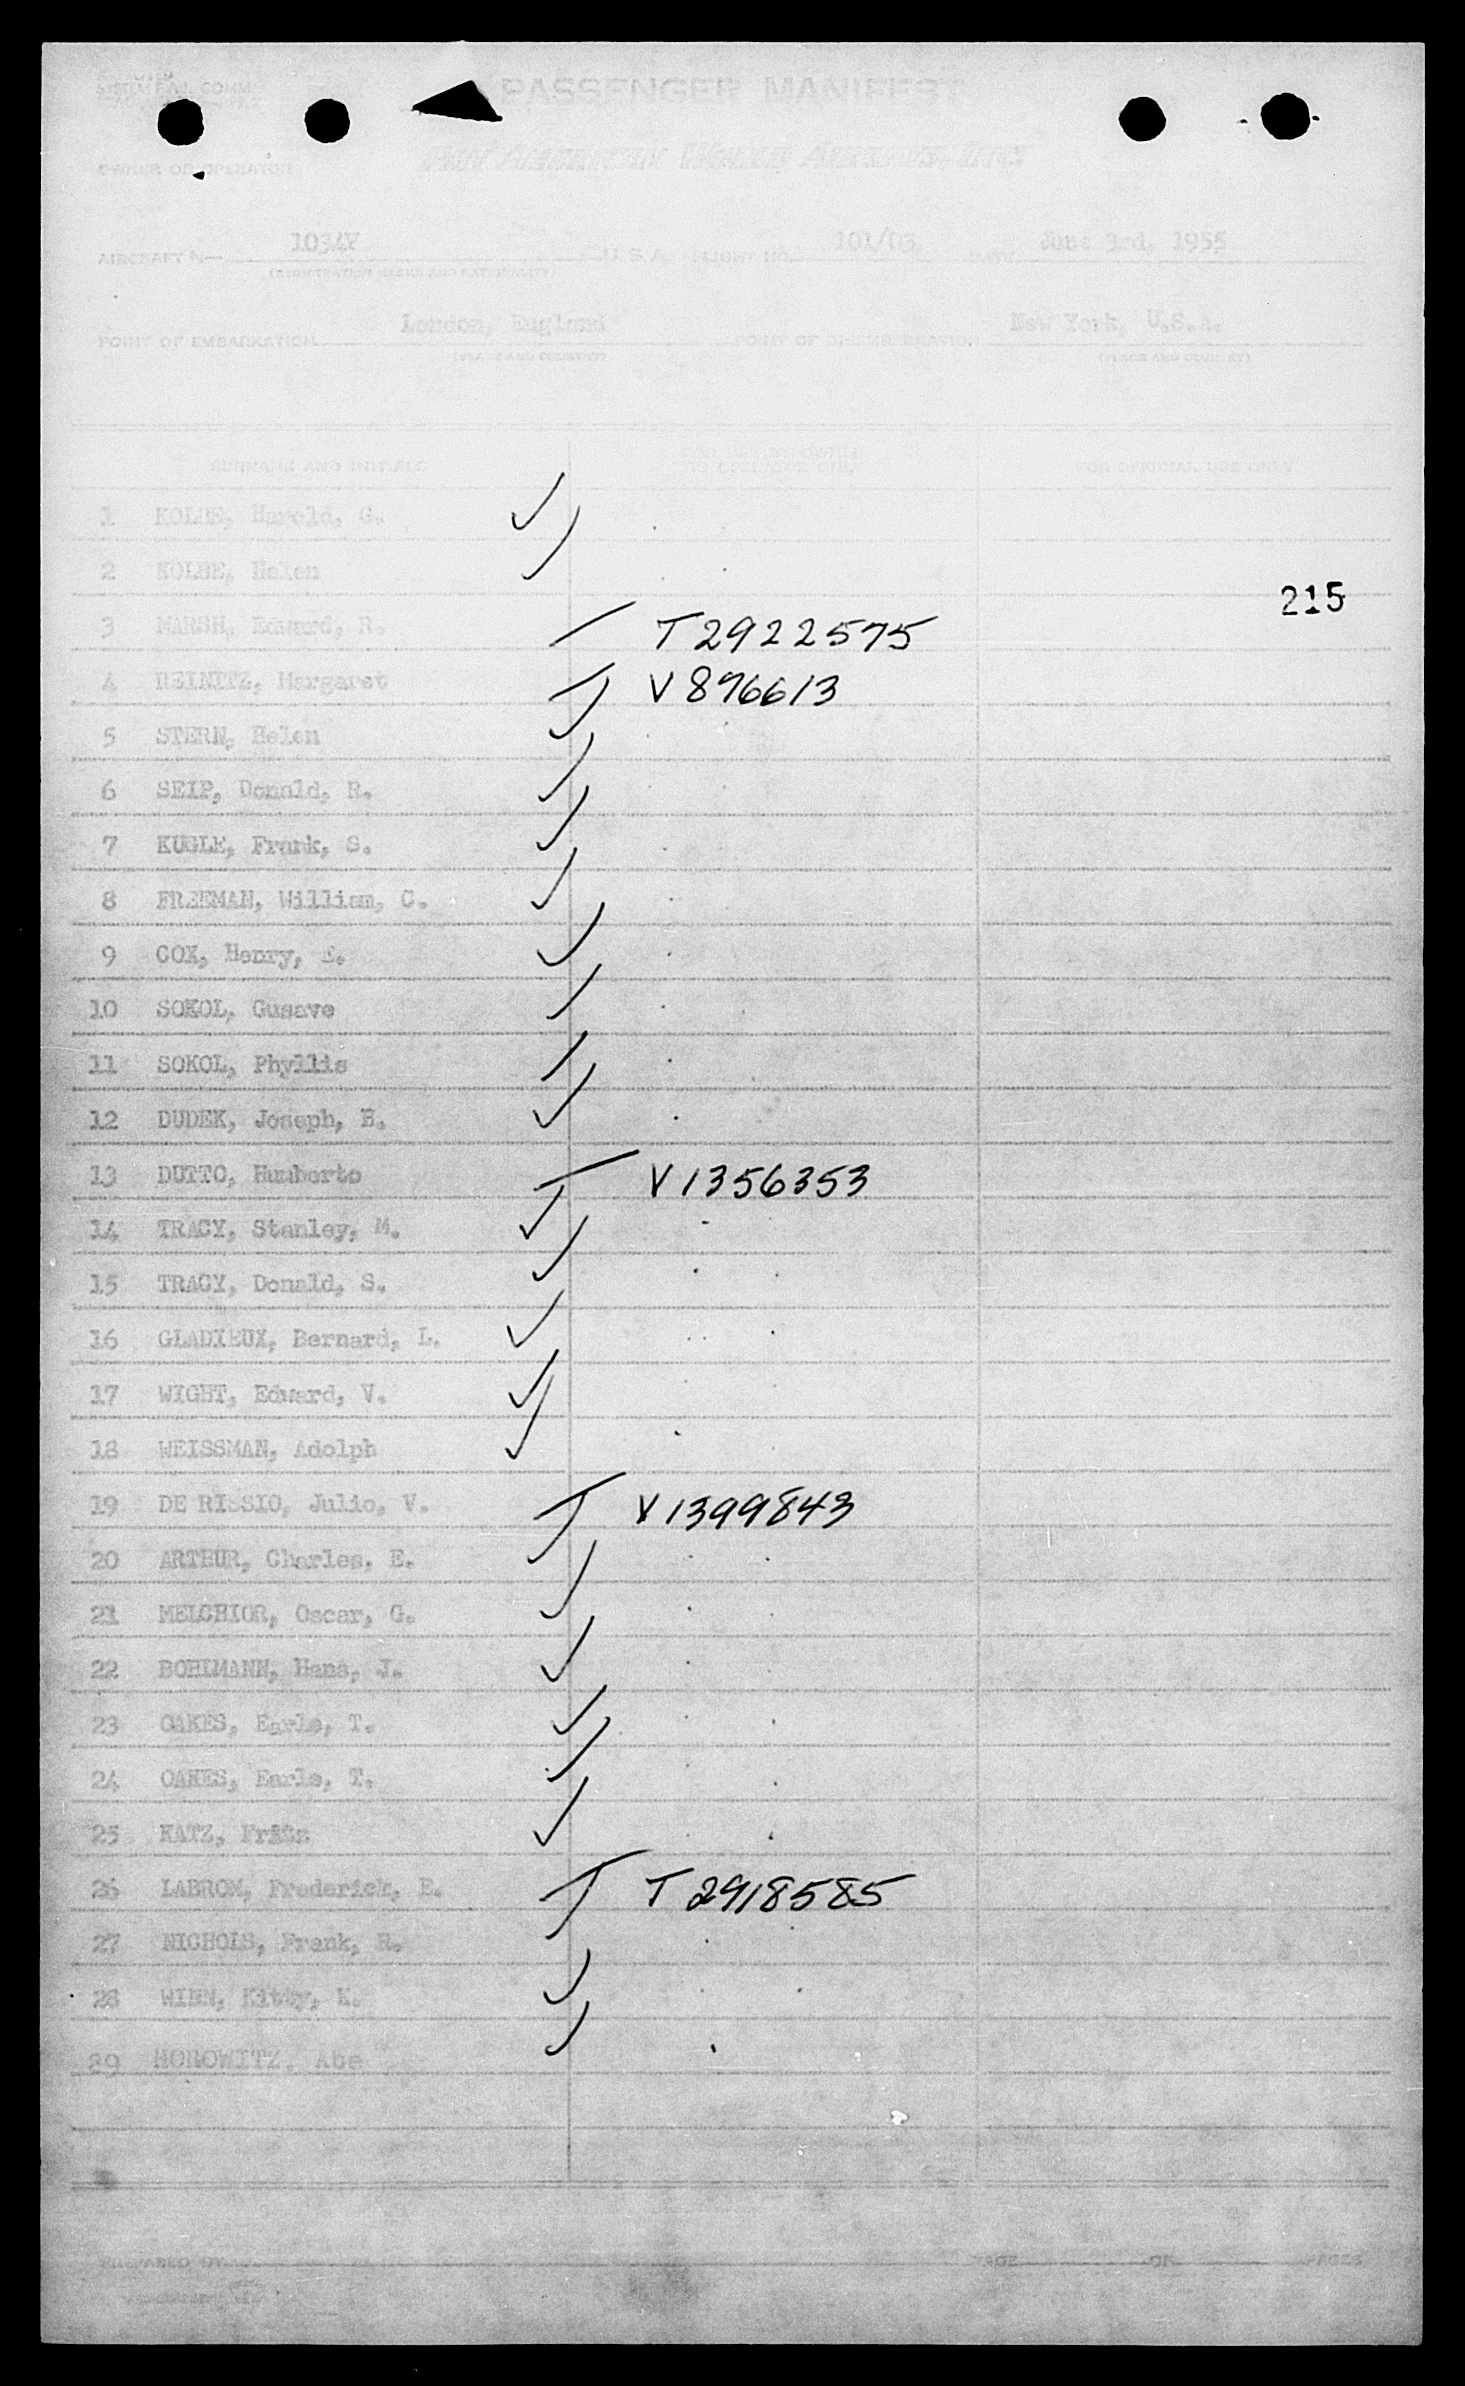 PASSENGER MANIFEST
PAN AMERICAN WORLD AIRWAYS, INC
OWNER OR OPERATOR
AIRCRAFT N— 1034V U.S.A. FLIGHT NO. 101/03 DATE June 3rd, 1955
POINT OF EMBARKATION London, England POINT OF DISEMBARKATION New York, U.S.A.
(PLACE AND COUNTRY) (PLACE AND COUNTRY)
SURNAME AND INITIALS FOR OFFICIAL USE ONLY
1 KOLBE, Harold, G.
2 KOLBE, Helen
215
3 MARSH, Edward, R. T2922575
4 REINITZ, Margaret V896613
5 STERN, Helen
6 SEIP, Donald, R.
7 KUGLE, Frank, S.
8 FREEMAN, William, C.
9 COX, Henry, E.
10 SOKOL, Gusave
11 SOKOL, Phyllis
12 DUDEK, Joseph, B.
13 DUTTO, Humberto V1356353
14 TRACY, Stanley, M.
15 TRACY, Donald, S.
16 GLADIEUX, Bernard, L.
17 WIGHT, Edward, V.
18 WEISSMAN, Adolph
19 DE RISSIO, Julio, V. V1399843
20 ARTHUR, Charles, E.
21 MELCHIOR, Oscar, G.
22 BOHLMANN, Hans, J.
23 OAKES, Earle, T.
24 OAKES, Earle, T.
25 KATZ, Fritz
26 LABROM, Frederick, E. T2918585
27 NICHOLS, Frank, R.
28 WINN, Kitty, K.
29 HOROWITZ, Abe
PREPARED BY PAGE OF PAGES